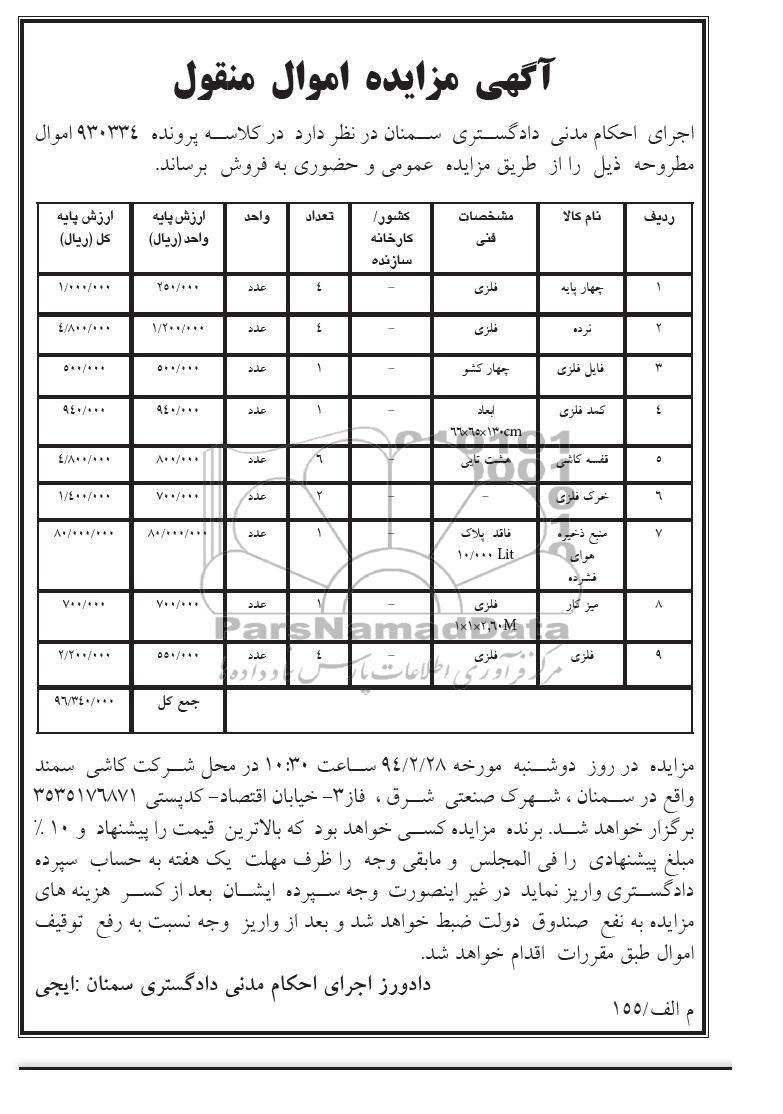 آگهی مزایده اموال منقول
اجرای احکام مدنی دادگستری سمنان در نظر دارد در کلاسه پرونده ۹۳۰۳۳٤ اموال
مطروحه ذیل را از طریق مزایده عمومی و حضوری به فروش برساند.
ردیف نام کالا مشخصات فنی کشور/ کارخانه سازنده تعداد واحد ارزش پایه واحد (ریال) ارزش پایه کل (ریال)
۱ چهار پایه فلزی – ٤ عدد ۲٥۰/۰۰۰ ۱/۰۰۰/۰۰۰
۲ نرده فلزی – ٤ عدد ۱/۲۰۰/۰۰۰ ٤/۸۰۰/۰۰۰
۳ فایل فلزی چهار کشو – ۱ عدد ٥۰۰/۰۰۰ ٥۰۰/۰۰۰
٤ کمد فلزی ابعاد ٦٦×٦٥×۱۳۰cm – ۱ عدد ۹٤۰/۰۰۰ ۹٤۰/۰۰۰
٥ قفسه کاشی هشت تایی – ٦ عدد ۸۰۰/۰۰۰ ٤/۸۰۰/۰۰۰
٦ خرک فلزی – – ۲ عدد ۷۰۰/۰۰۰ ۱/٤۰۰/۰۰۰
۷ منبع ذخیره هوای فشرده فاقد پلاک ۱۰/۰۰۰ Lit – ۱ عدد ۸۰/۰۰۰/۰۰۰ ۸۰/۰۰۰/۰۰۰
۸ میز کار فلزی ۱×۱×۲,٦۰M – ۱ عدد ۷۰۰/۰۰۰ ۷۰۰/۰۰۰
۹ فلزی فلزی – ٤ عدد ٥٥۰/۰۰۰ ۲/۲۰۰/۰۰۰
جمع کل ۹٦/۳٤۰/۰۰۰
ParsNamadData
مرکز فرآوری اطلاعات پارس نماد داده ها
مزایده در روز دوشنبه مورخه ۹٤/۲/۲۸ ساعت ۱۰:۳۰ در محل شرکت کاشی سمند
واقع در سمنان ، شهرک صنعتی شرق ، فاز۳- خیابان اقتصاد- کدپستی ۳٥۳٥۱۷٦۸۷۱
برگزار خواهد شد. برنده مزایده کسی خواهد بود که بالاترین قیمت را پیشنهاد و ۱۰ ٪
مبلغ پیشنهادی را فی المجلس و مابقی وجه را ظرف مهلت یک هفته به حساب سپرده
دادگستری واریز نماید در غیر اینصورت وجه سپرده ایشان بعد از کسر هزینه های
مزایده به نفع صندوق دولت ضبط خواهد شد و بعد از واریز وجه نسبت به رفع توقیف
اموال طبق مقررات اقدام خواهد شد.
دادورز اجرای احکام مدنی دادگستری سمنان :ایجی
م الف/۱٥٥